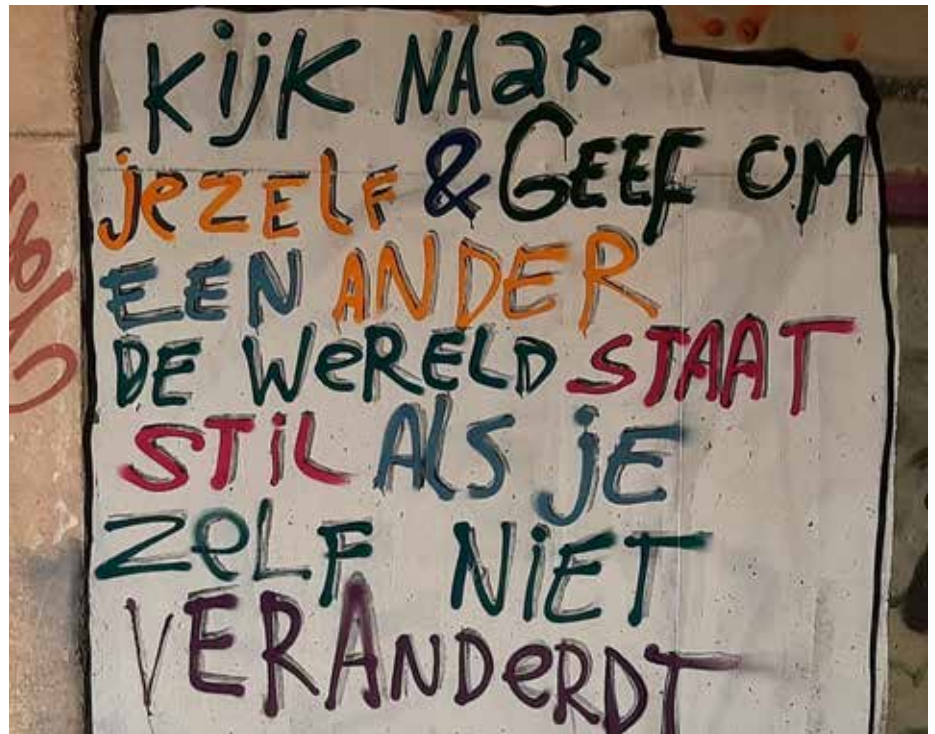 KijK NAaR
jeZELF & GEEF OM
EEN ANDER
DE WeRELD STAAT
STiL ALS jE
ZeLF NiET
VERANDeRDT